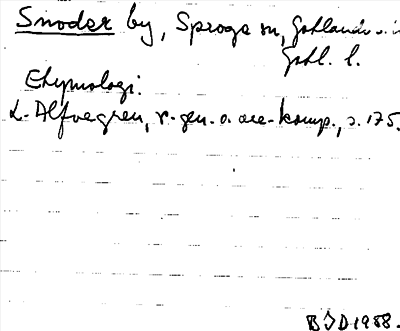 Snoder by, Sproge sn, Gotlands s.
Gotl. l.
Etymologi:
L. Alfvegren, r-gen. o. are-komp., s. 175.
BJD 1988.